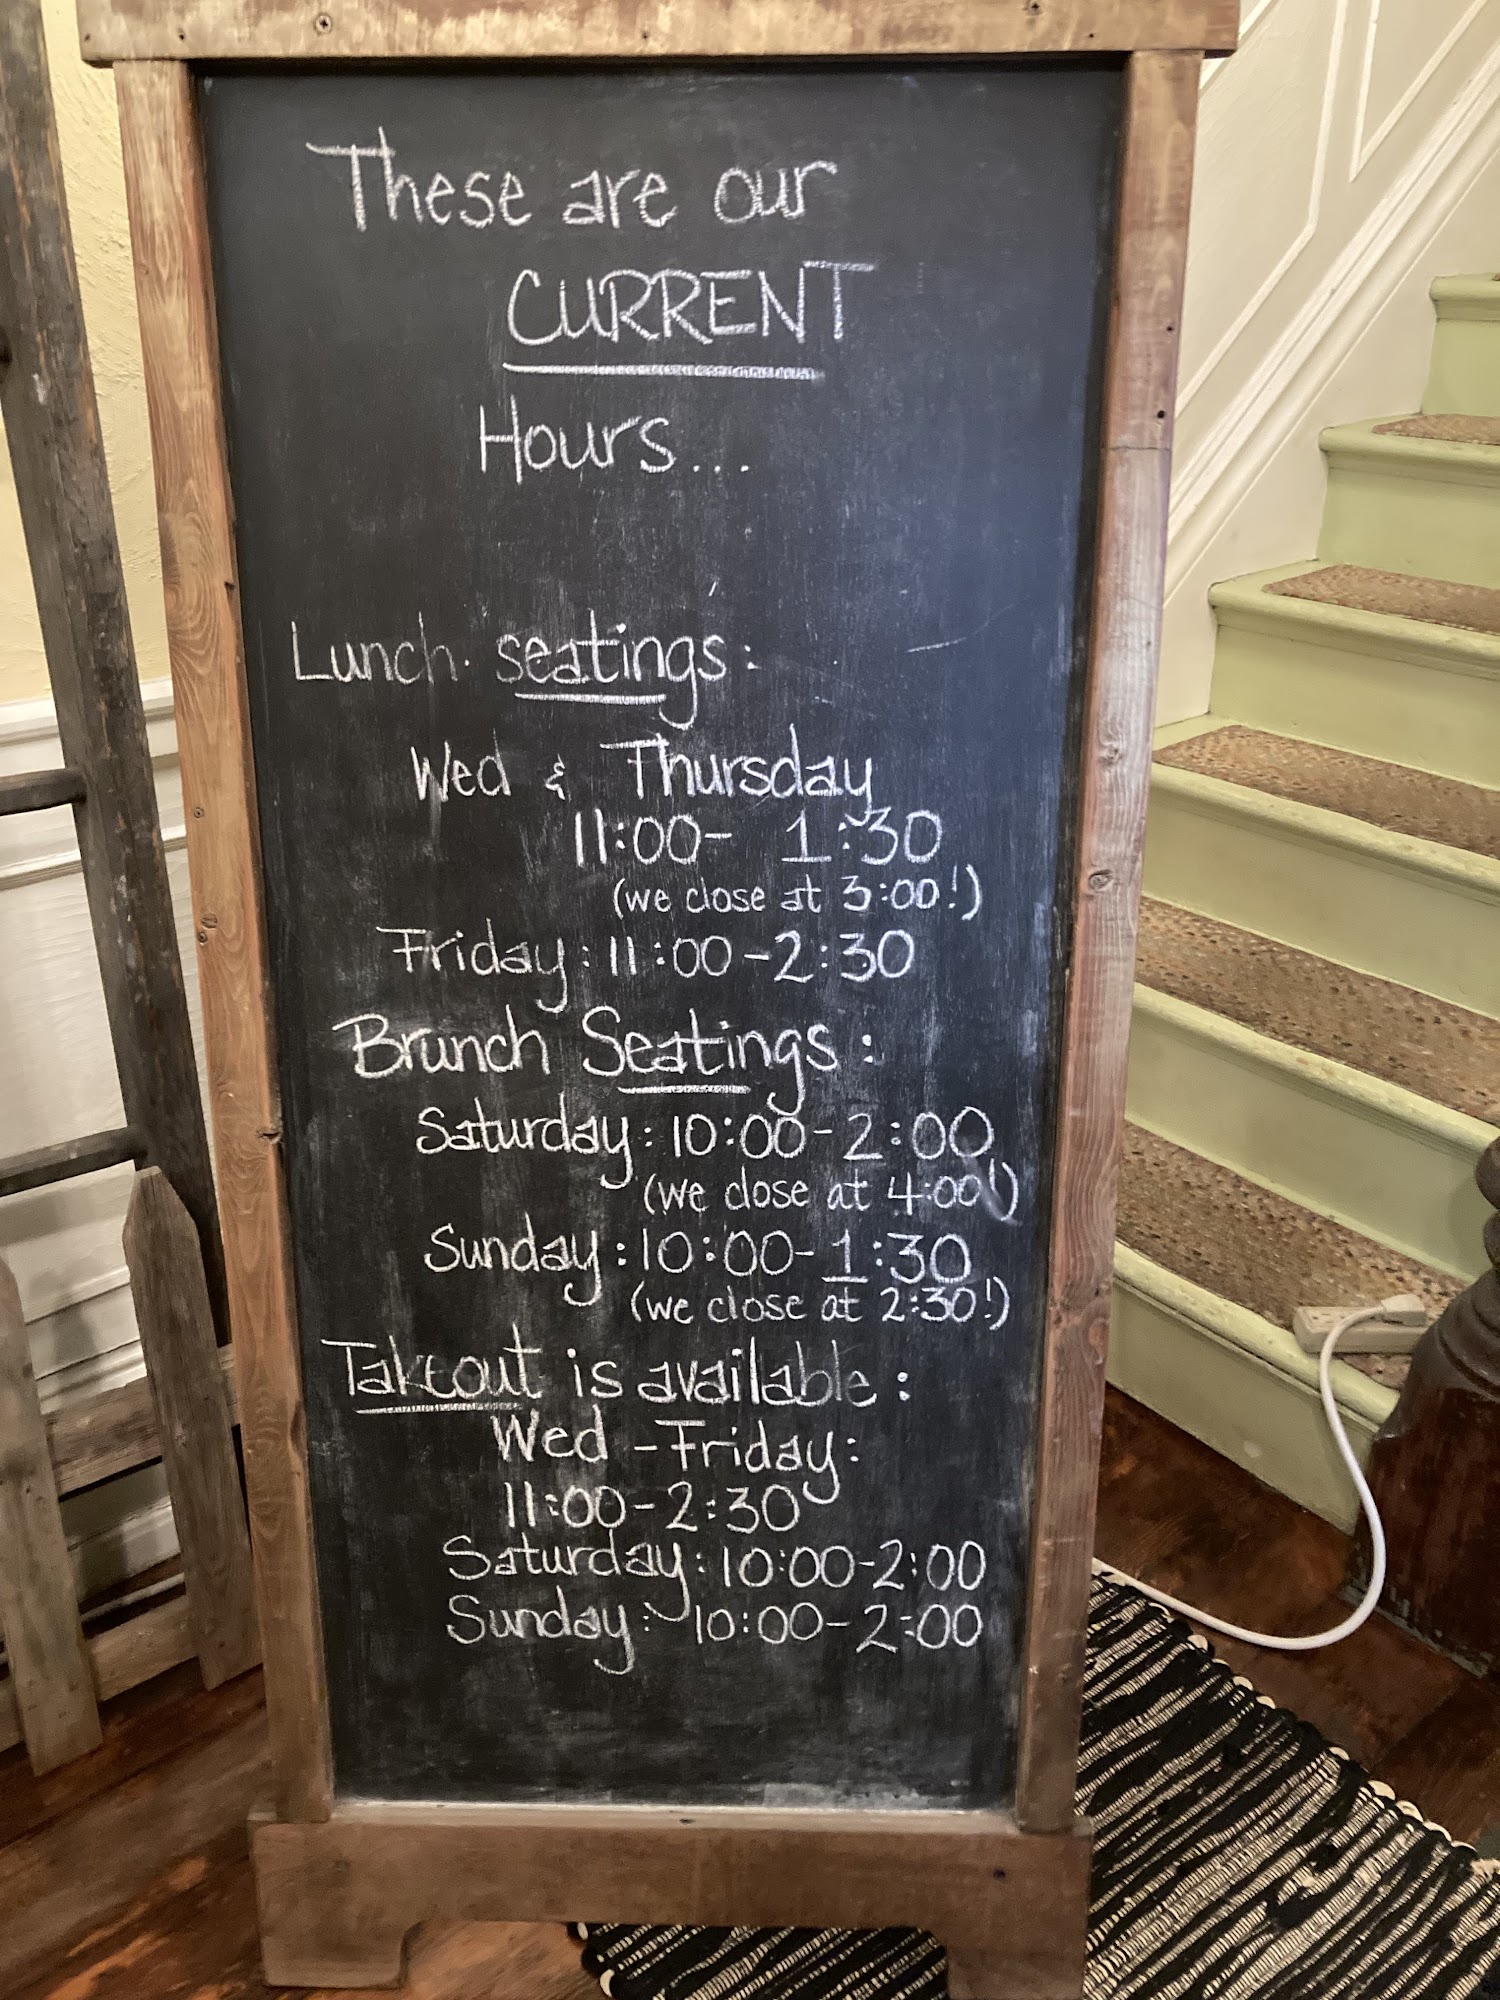 These are our
CURRENT
Hours...
Lunch seatings:
Wed & Thursday
11:00- 1:30
(we close at 3:00!)
Friday: 11:00-2:30
Brunch Seatings:
Saturday: 10:00-2:00
(we close at 4:00!)
Sunday: 10:00-1:30
(we close at 2:30!)
Takeout is available:
Wed - Friday:
11:00-2:30
Saturday: 10:00-2:00
Sunday: 10:00-2:00